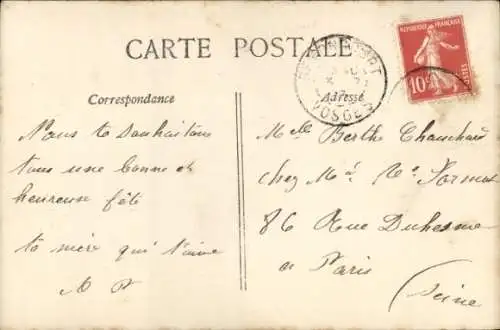 CARTE POSTALE
RÉPUBLIQUE FRANÇAISE
10c
POSTES
VOSGES
Correspondance
Adresse
Nous te souhaitons
tous une bonne et
heureuse fête
ta mère qui t'aime
Melle Berthe Chauchard
chez Md Ve
86 Rue Duhesme
a Paris
(Seine